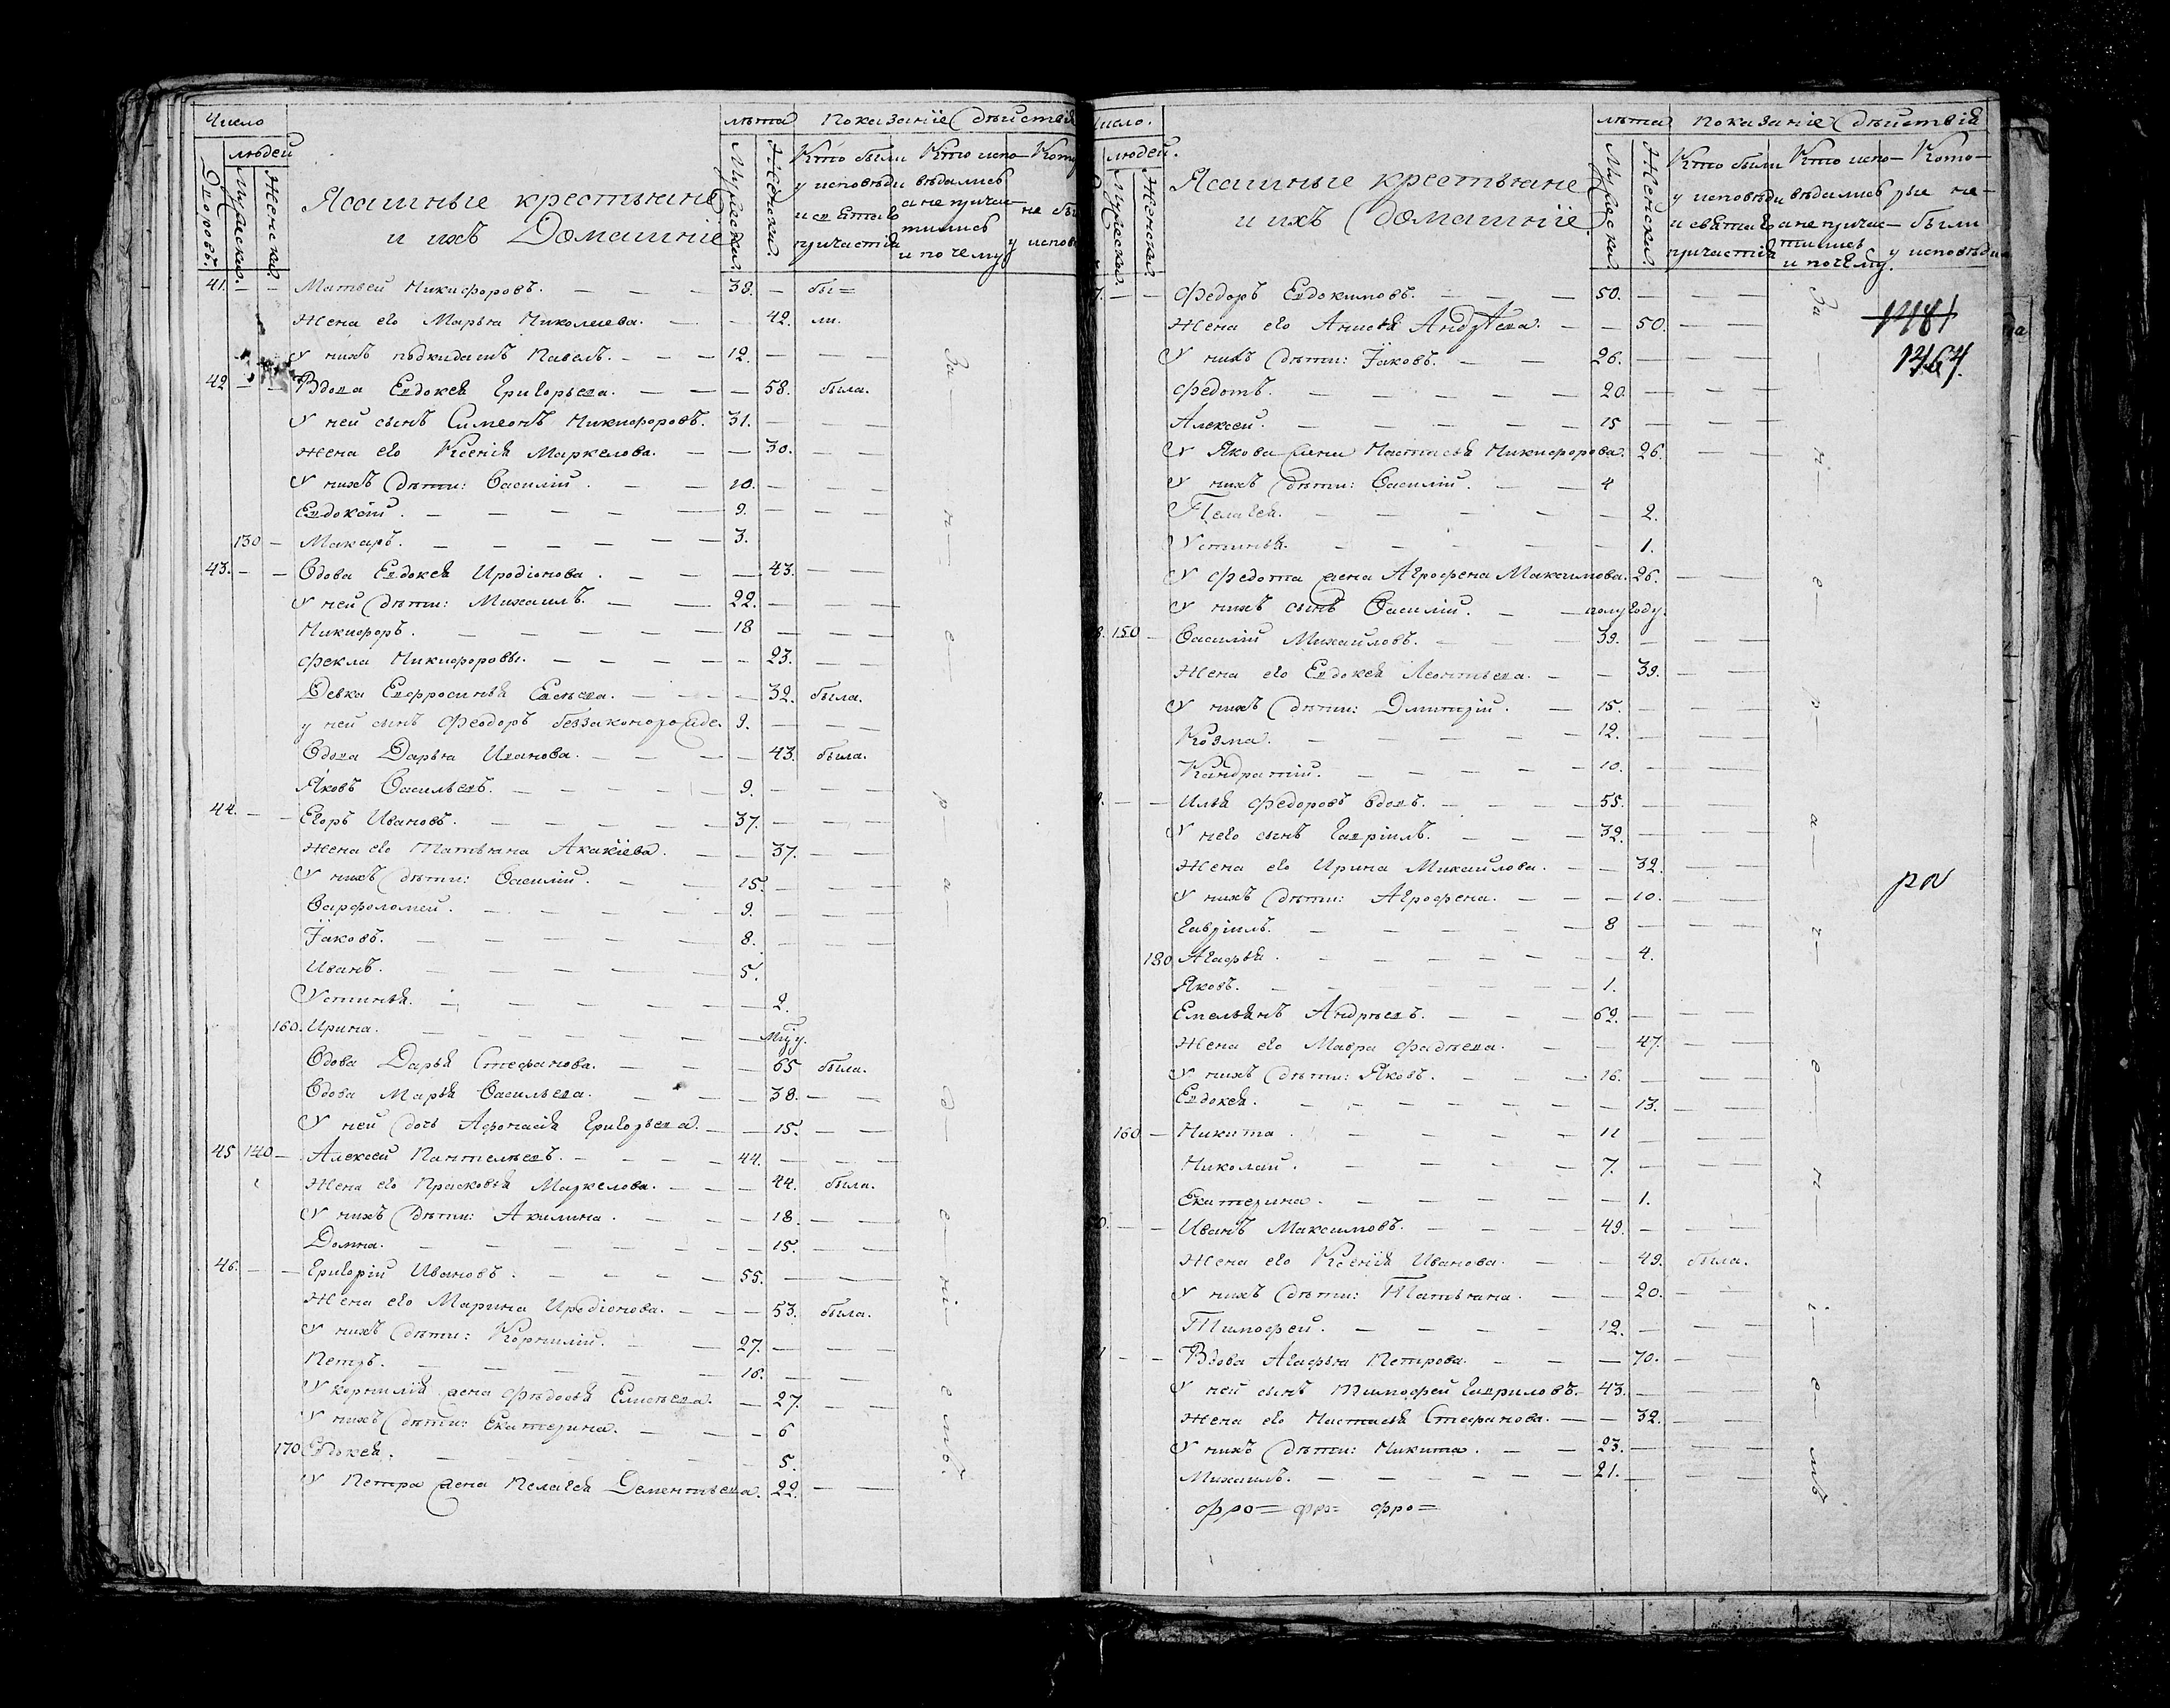 Число
людей
Дворовъ.
Мужеска.
Женска.
Ясашные крестьяне
и ихъ Домашніе
лѣта
Мужеска.
Женска.
Показаніе дѣйствія
Кто были
у исповѣди
и святаго
причастія
Кто испо-
вѣдались
а не прича-
тились
и почему
не бы
у испов
41. — — Матвей Никифоровъ. — — — 38. — бы=
Жена его Марья Николаева. — — 42. ли.
У нихъ подкидашъ Павелъ. — — — 12. — — —
42 — — Вдова Евдокея Григорьева. — — — 58. была.
У ней сынъ Симеонъ Никифоровъ. 31. — — —
Жена его Ксенія Маркелова. — — 30. — —
У нихъ дѣти: Василий. — — 10. — — —
Евдокѣй. — — — — — 9. — — —
130 — Макаръ. — — — — — — 3.
43. — — Вдова Евдокея Иродіонова. — — — 43. — —
У ней дѣти: Михаилъ. — — 22. — —
Никифоръ. — — — — — 18 — — —
Фекла Никифоровы. — — — — — 23. — —
Девка Евфросинья Евсѣева. — — — 32. была.
у ней сынъ Феодоръ беззаконорожде. 9. — — —
Вдова Дарья Иванова. — — — — 43. была.
Яковъ Васильевъ. — — — — — 9. — — —
44. — — Егоръ Ивановъ. — — — — — 37. — — —
Жена его Татьяна Акакіева. — — 37. — —
У нихъ дѣти: Василий. — — 15. — — —
Варфоломей. — — — — — 9. — — —
Іаковъ. — — — — — 8. — — —
Иванъ. — — — — 5.
Устинья. — — — — — — 2.
160. Ирина. — — — — — —
Вдова Дарья Стефанова. — — — — 65 была.
Вдова Марья Васильева. — — — 38. — —
У ней дочь Афонасія Григорьева. — — 15. — —
45 140 — Алексей Пантелеевъ. — — — — 44. — — —
Жена его Прасковья Маркелова. — — — 44. была.
У нихъ дѣти: Акилина. — — — 18. — —
Домна. — — — — — — 15. — —
46. — — Григорій Ивановъ. — — — — 55. — — —
Жена его Марина Иродіонова. — — — 53. была.
У нихъ дѣти: Корнилій. — — 27. — — —
Петръ. — — — — 16. — —
У корнилія жена Фѣдосья Елисѣева. — 27. — —
У нихъ дѣти: Екатерина. — — — 6
170 Евдокея. — — — — — 5.
У Петра жена Пелагея Дементьева. 22. — —
За н е р а д е ні е мъ.
Число.
людей.
Мужеска.
Женска.
Ясашные крестьяне
и ихъ домашніе
лѣта
Мужеска.
Женска.
Показаніе дѣйствія
Кто были
у исповѣди
и святаго
причастія
Кто испо-
вѣдались
а не причас-
тились
и почему.
Кото-
рые не-
были
у исповѣди
1481
1464.
7. — — Федоръ Евдокимовъ. — — — 50. — — —
Жена его Анисья Андрѣева. — — 50. — —
У нихъ дѣти: Іаковъ. — — 26. — — —
Федотъ. — — — — — 20. — — —
Алексей. — — — — — 15 — — —
У Якова жена Настасья Никифорова. 26. — —
У нихъ дѣти: Василий. — — 4
Пелагея. — — — — — 2.
Устинья. — — — — — 1.
У Федота жена Агрофена Максимова. 26. — —
У нихъ сынъ Василий. — — полугоду.
8. 150 — Василий Михайловъ. — — — 39. — — —
Жена его Евдокея Леонтьева. — — 39. — —
У нихъ дѣти: Дмитрій. — 15. — — —
Козма. — — — — — 12. — — —
Кандратий. — — — — — 10. — — —
9. — — Илья Федоровъ вдовъ. — — — — 55. — — —
У него сынъ Гавріилъ. — — — 32. — — —
Жена его Ирина Михайлова. — — 32. — —
У нихъ дѣти: Агрофена. — — — 10. — —
Гавріилъ. — — — — — 8 — — —
180 Агафья. — — — — — — 4.
Яковъ. — — — — — 1.
Емельянъ Андрѣевъ. — — — 62. — — —
Жена его Мавра Фадѣева. — — 47. — —
У нихъ дѣти: Яковъ. — — — 16. — — —
Евдокея. — — — — — — 13. — —
160 — Никита. — — — — — 11 — — —
Николай. — — — — 7. — — —
Екатерина. — — — — — 1.
0. — — Иванъ Максимовъ. — — — — 49. — — —
Жена его Ксенія Иванова. — — 49. была.
У нихъ дѣти: Татьяна. — — 20. — —
Тимофей. — — — — 12. — — —
1 — — Вдова Агафья Петрова. — — 70. — —
У ней сынъ Тимофей Гавриловъ. 43. — — —
Жена его Настасья Стефанова. — — 32. — —
У нихъ дѣти: Никита. — — 23. — — —
Михаилъ. — — — — — 21. — — —
фро= фро= фро=
За н е р а
ра